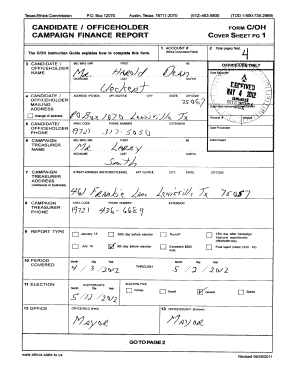 Texas Ethics Commission P.O. Box 12070 Austin, Texas 78711-2070 (512) 463-5800 (TDD 1-800-735-2989)
CANDIDATE / OFFICEHOLDER FORM C/OH
CAMPAIGN FINANCE REPORT COVER SHEET PG 1
The C/OH Instruction Guide explains how to complete this form.
1 ACCOUNT #
2 Total pages filed:
4
3 CANDIDATE / OFFICEHOLDER NAME
MS / MRS / MR FIRST MI
Mr. Harold Dean
NICKNAME LAST SUFFIX
Ueckert
4 CANDIDATE / OFFICEHOLDER MAILING ADDRESS
ADDRESS / PO BOX; APT / SUITE #; CITY; STATE; ZIP CODE
75067
change of address
PO Box 1070 Lewisville Tx
RECEIVED
MAY 4 2012
5 CANDIDATE / OFFICEHOLDER PHONE
AREA CODE PHONE NUMBER EXTENSION
(972) 317-5050
6 CAMPAIGN TREASURER NAME
MS / MRS / MR FIRST MI
Mr. Larry
NICKNAME LAST SUFFIX
Smith
7 CAMPAIGN TREASURER ADDRESS
STREET ADDRESS (NO PO BOX PLEASE); APT / SUITE #; CITY; STATE; ZIP CODE
461 Frankie Lane Lewisville Tx 75057
8 CAMPAIGN TREASURER PHONE
AREA CODE PHONE NUMBER EXTENSION
(972) 436-6689
9 REPORT TYPE
January 15 30th day before election Runoff
July 15 8th day before election Exceeded $500 limit
10 PERIOD COVERED
Month Day Year
4 / 3 / 2012 THROUGH 5 / 2 / 2012
11 ELECTION
ELECTION DATE ELECTION TYPE
Month Day Year
5 / 12 / 2012
Primary Runoff General Special
12 OFFICE
OFFICE HELD (if any)
Mayor
13 OFFICE SOUGHT (if known)
Mayor
GO TO PAGE 2
www.ethics.state.tx.us Revised 09/28/2011